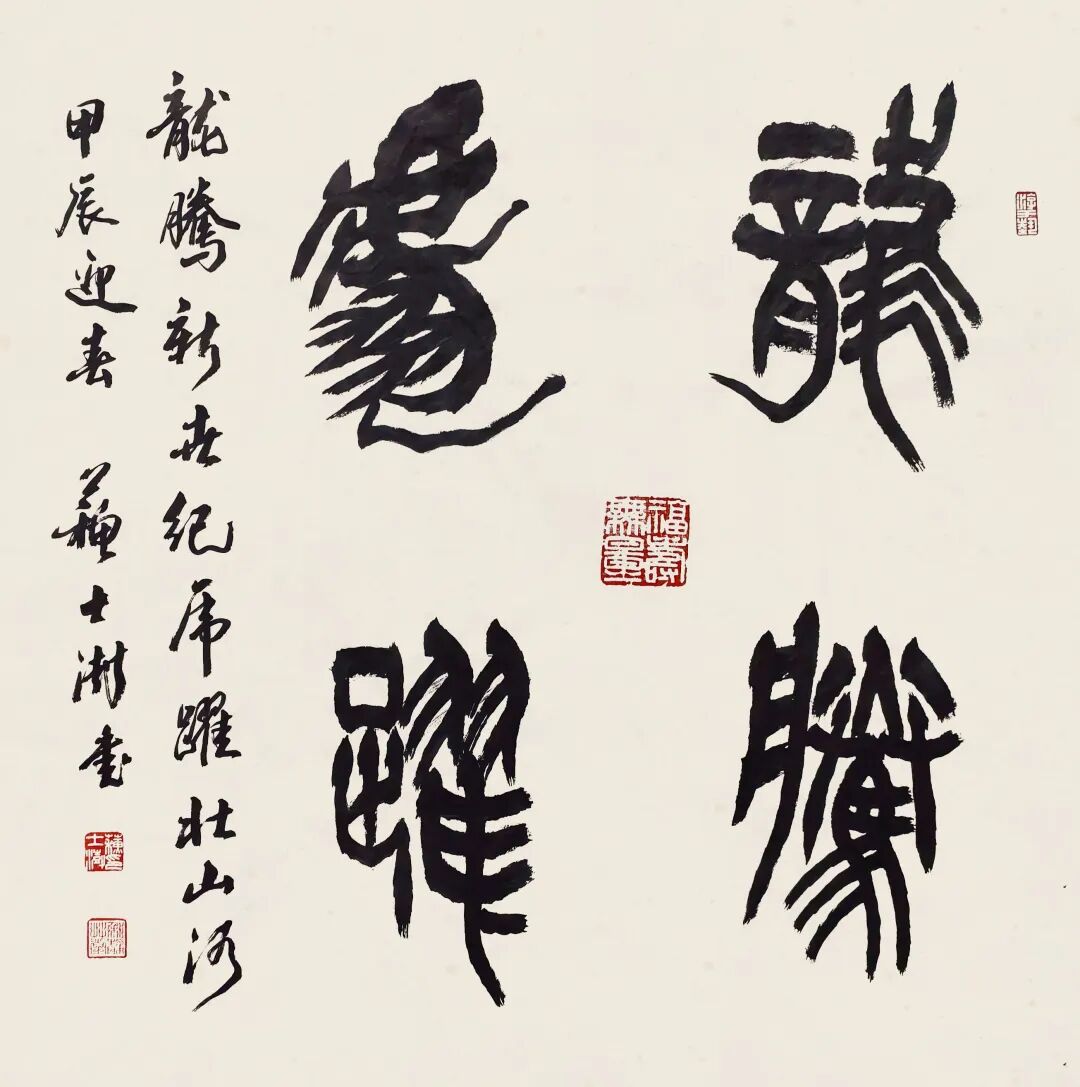 龍騰
虎躍
福壽無量
龍騰新世紀虎躍壯山河
甲辰迎春 蘇士澍書